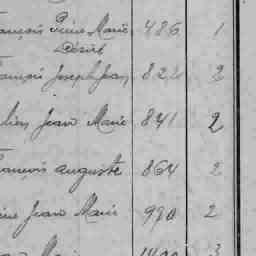 François Pierre Marie 486 1
Désiré
François Joseph Jean 822 2
Jean Marie 841 2
François auguste 864 2
Jean Marie 990 2
3